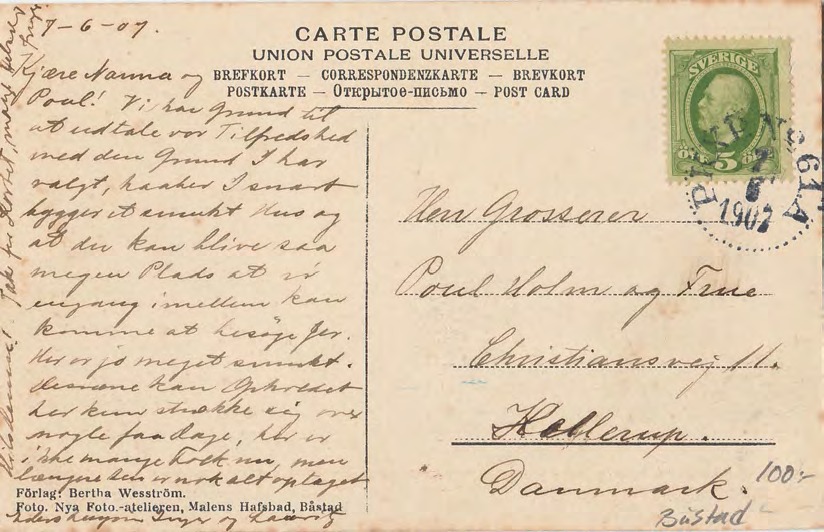 7-6-07.
Kjære Nanna og
Poul! Vi har Grund til
at udtale vor Tilfredshed
med den Grund I har
valgt, haaber I snart
bygger et smukt Hus og
at der kan blive saa
megen Plads at vi
engang imellem kan
komme at besøge Jer.
Her er jo meget smukt.
desværre kan Opholdet
her kun strække sig over
nogle faa Dage, her er
ikke mange Folk nu, men
længere hen er nok alt optaget
Inger og Lauritz
Tak for
CARTE POSTALE
UNION POSTALE UNIVERSELLE
BREFKORT — CORRESPONDENZKARTE — BREVKORT
POSTKARTE — Открытое-письмо — POST CARD
SVERIGE
5
ÖRE
7
6
1907
Herr Grosserer
Poul Holm og Frue
Christiansvej 11.
Hellerup.
Danmark.
100:-
Båstad
Förlag: Bertha Wesström.
Foto. Nya Foto.-atelieren, Malens Hafsbad, Båstad